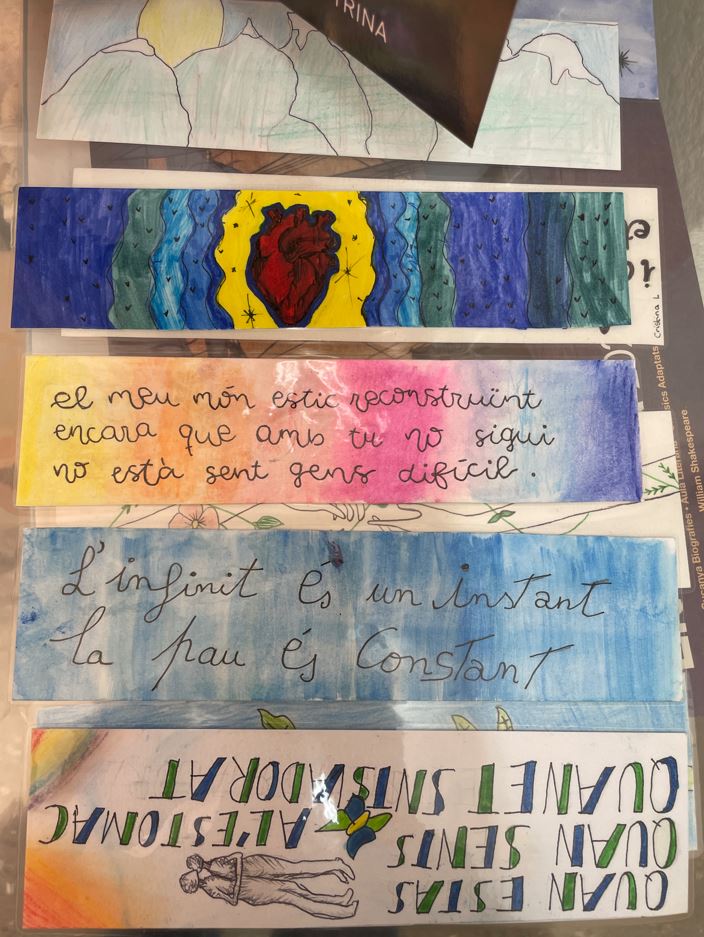 TRINA
Cristina L
el meu món estic reconstruïnt
encara que amb tu no sigui
no està sent gens difícil.
L'infinit És un instant
la pau és Constant
QUAN ESTAS
QUAN SENTS A L'ESTOMAC
QUAN ET SENTS ADORAT
sics Adaptats
Biografies • Aula
William Shakespeare